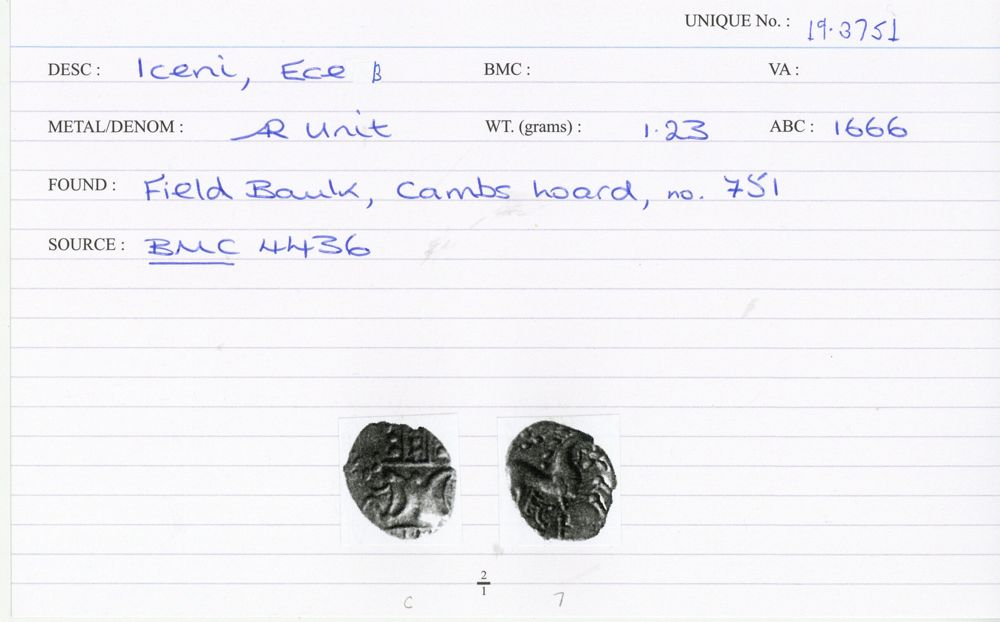 UNIQUE No. : 19.3751
DESC : Iceni, Ece β BMC : VA :
METAL/DENOM : AR Unit WT. (grams) : 1.23 ABC : 1666
FOUND : Field Baulk, Cambs hoard, no. 751
SOURCE : BMC 4436
2
1
C 7